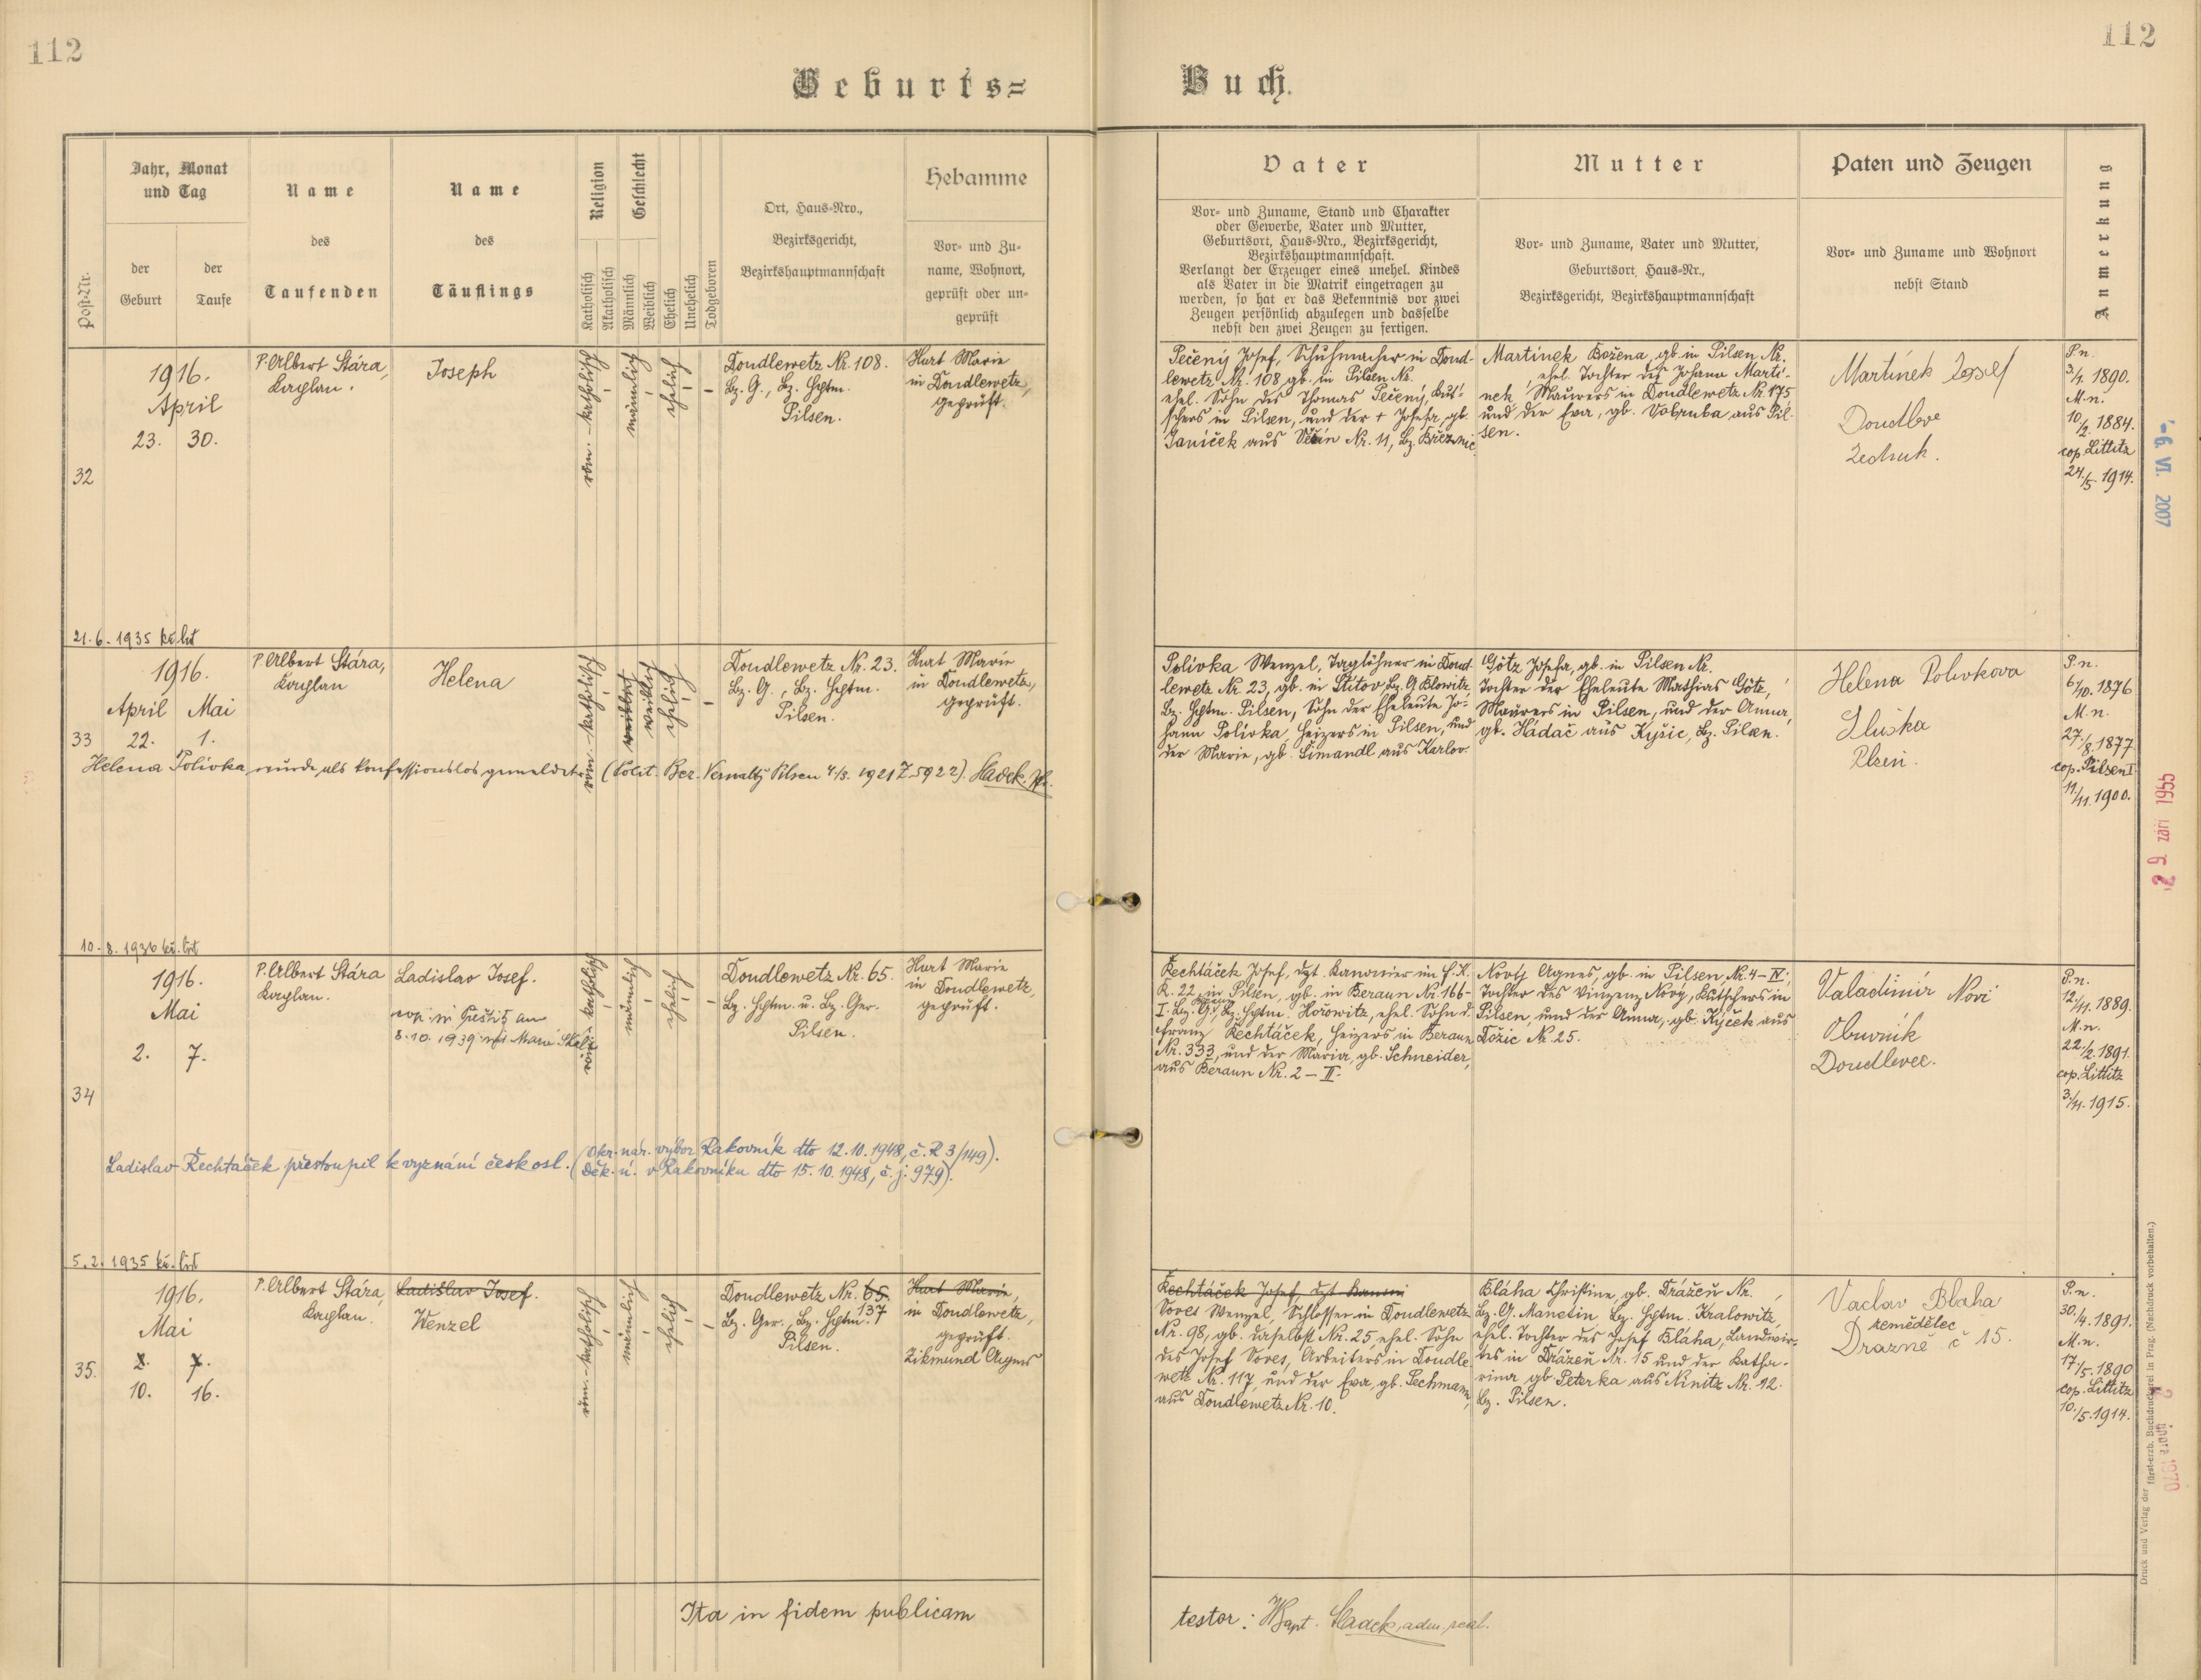 112
112
Geburts=
Buch.
Post-Nr.
Jahr, Monat
und Tag
der
Geburt
der
Taufe
Name
des
Taufenden
Name
des
Täuflings
Religion
Katholisch
Akatholisch
Geschlecht
Männlich
Weiblich
Ehelich
Unehelich
Todgeboren
Ort, Haus-Nro.,
Bezirksgericht,
Bezirkshauptmannschaft
Hebamme
Vor- und Zu-
name, Wohnort,
geprüft oder un-
geprüft
Vater
Vor- und Zuname, Stand und Charakter
oder Gewerbe, Vater und Mutter,
Geburtsort, Haus-Nro., Bezirksgericht,
Bezirkshauptmannschaft.
Verlangt der Erzeuger eines unehel. Kindes
als Vater in die Matrik eingetragen zu
werden, so hat er das Bekenntnis vor zwei
Zeugen persönlich abzulegen und dasselbe
nebst den zwei Zeugen zu fertigen.
Mutter
Vor- und Zuname, Vater und Mutter,
Geburtsort, Haus-Nr.,
Bezirksgericht, Bezirkshauptmannschaft
Paten und Zeugen
Vor- und Zuname und Wohnort
nebst Stand
Anmerkung
32
1916.
April
23. 30.
P. Albert Stára,
Kaplan.
Joseph
röm.-katholisch
männlich
ehelich
Doudlewetz Nr. 108.
Bz. G., Bz. Hptm.
Pilsen.
Hurt Marie
in Doudlewetz,
geprüft.
Pečený Josef, Schuhmacher in Doud-
lewetz Nr. 108 gb. in Pilsen Nr.
ehel. Sohn des Thomas Pečený, Kut-
schers in Pilsen, und der + Josefa, gb.
Janíček aus Nr. 11, Bz. Březnic.
Martínek Božena, gb. in Pilsen Nr.
ehel. Tochter des Johann Martí-
nek, Maurers in Doudlewetz Nr. 175
und der Eva, gb. Vohruba aus Pil-
sen.
Martínek Josef
Doudleve
P.n.
3/1. 1890.
M.n.
10/2. 1884.
cop. Littitz
24/5. 1914.
- 6. VI. 2007
21.6.1935
33
1916.
April Mai
22. 1.
P. Albert Stára,
Kaplan
Helena
röm.-katholisch
weiblich
ehelich
Doudlewetz Nr. 23.
Bz. G., Bz. Hptm.
Pilsen.
Hurt Marie
in Doudlewetz,
geprüft.
Helena Polívka wurde als konfessionslos gemeldet (Polit. Bez. Verwaltg Pilsen 4/3. 1921 Z 5922).
Polívka Wenzel, Taglöhner in Doud-
lewetz Nr. 23, gb. in Štítov, Bz. G. Blowitz,
Bz. Hptm. Pilsen, Sohn der Eheleute Jo-
hann Polívka, Heizers in Pilsen, und
der Marie, gb. Šimandl aus Karlov.
Götz Josefa, gb. in Pilsen Nr.
Tochter der Eheleute Mathias Götz,
Maurers in Pilsen, und der Anna,
gb. Hádač aus Kyšic, Bz. Pilsen.
Helena Polivkova
Plzeň.
P.n.
6/10. 1876
M.n.
27/8. 1877
cop. Pilsen I.
11/11. 1900.
29 září 1955
10.8.1936
34
1916.
Mai
2. 7.
P. Albert Stára
Kaplan.
Ladislav Josef.
8.10.1939 mit Marie
röm.-katholisch
männlich
ehelich
Doudlewetz Nr. 65.
Bz. Hptm. u. Bz. Ger.
Pilsen.
Hurt Marie
in Doudlewetz,
geprüft.
Ladislav Řechtáček přestoupil k vyznání českosl. (Okr. nár. výbor Rakovník dto 12.10.1948, č. R 3/149).
(Děk. ú. v Rakovníku dto 15.10.1948, č.j. 979).
Řechtáček Josef, dzt. Kanonier im F.K.
R. 22 in Pilsen, gb. in Beraun Nr. 166-
I. Bz. G., Bz. Hptm. Hořowitz, ehel. Sohn d.
Franz Řechtáček, Heizers in Beraun
Nr. 333, und der Maria, gb. Schneider,
aus Beraun Nr. 2 - II.
Nový Agnes, gb. in Pilsen, Nr. 4 - IV.,
Tochter des Vinzenz Nový, Kutschers in
Pilsen, und der Anna, gb. Rýček aus
Tožic Nr. 25.
Valadimír Noví
Obuvník
Doudlevec.
P.n.
12/11. 1889.
M.n.
22/2. 1891.
cop. Littitz
3/11. 1915.
5.2.1935
35.
1916.
Mai
2. 7.
10. 16.
P. Albert Stára,
Kaplan.
Ladislav Josef.
Wenzel
röm.-katholisch
männlich
ehelich
Doudlewetz Nr. 65.
137
Bz. Ger., Bz. Hptm.
Pilsen.
Hurt Marie,
in Doudlewetz,
geprüft.
Zikmund Agnes
Řechtáček Josef, dzt. Kanoni
Voves Wenzel, Schlosser in Doudlewetz
Nr. 98, gb. daselbst Nr. 25, ehel. Sohn
des Josef Voves, Arbeiters in Doudle-
wetz Nr. 117, und der Eva, gb. Pechmann,
aus Doudlewetz Nr. 10.
Bláha Christine, gb. Dražeň Nr.
Bz. G. Manetin, Bz. Hptm. Kralowitz,
ehel. Tochter des Josef Bláha, Landwir-
tes in Dražeň Nr. 15 und der Katha-
rina, gb. Peterka aus Ninitz Nr. 12.
Bz. Pilsen.
Vaclav Blaha
zemědělec
Drazně č 15.
P.n.
30/4. 1891.
M.n.
17/5. 1890
cop. Littitz
10/5. 1914.
Ita in fidem publicam
testor:
Druck und Verlag der fürst-erzb. Buchdruckerei in Prag. (Nachdruck vorbehalten.)